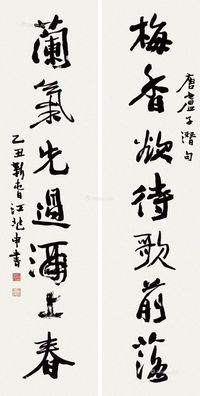 唐盧子潛句
梅香欲待歌前落
蘭氣先過酒上春
乙丑新春江兆申書